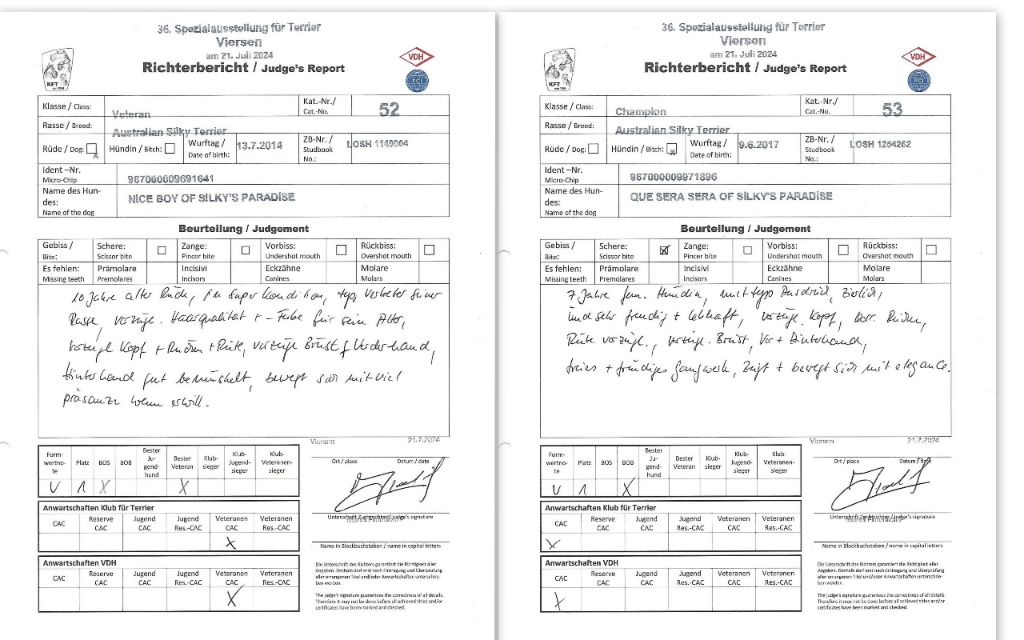 36. Spezialausstellung für Terrier
Viersen
am 21. Juli 2024
Richterbericht / Judge's Report
KFT
VDH
Klasse / Class:
Veteran
Kat.-Nr./
Cat.-No.
52
Rasse / Breed:
Australian Silky Terrier
Rüde / Dog:
Hündin / Bitch:
Wurftag /
Date of birth:
13.7.2014
ZB-Nr. /
Studbook
No.:
LOSH 1149004
Ident –Nr.
Micro-Chip
967000009691641
Name des Hun-
des:
Name of the dog
NICE BOY OF SILKY'S PARADISE
Beurteilung / Judgement
Gebiss /
Bite:
Schere:
Scissor bite
Zange:
Pincer bite
Vorbiss:
Undershot mouth
Rückbiss:
Overshot mouth
Es fehlen:
Missing teeth
Prämolare
Premolares
Incisivi
Incisors
Eckzähne
Canines
Molare
Molars
10 Jahre alter Rüde, in super Kondition, typ. Vertreter seiner
Rasse, vorzügl. Haarqualität + -Farbe für sein Alter,
vorzügl Kopf + Rücken + Rute, vorzügl Brust Vorderhand,
Hinterhand gut bemuskelt, bewegt sich mit viel
präsanz wenn er will.
Form-
wertno-
te
Platz
BOS
BOB
Bester
Ju-
gend-
hund
Bester
Veteran
Klub-
sieger
Klub-
Jugend-
sieger
Klub-
Veteranen-
sieger
V 1 X X
Viersen
21.7.2024
Ort / place
Datum / date
Anwartschaften Klub für Terrier
CAC
Reserve
CAC
Jugend
CAC
Jugend
Res.-CAC
Veteranen
CAC
Veteranen
Res.-CAC
X
Unterschrift Zuchtrichter/ judge's signature
Name in Blockbuchstaben / name in capital letters
Anwartschaften VDH
CAC
Reserve
CAC
Jugend
CAC
Jugend
Res.-CAC
Veteranen
CAC
Veteranen
Res.-CAC
X
Die Unterschrift des Richters garantiert die Richtigkeit aller
Angaben. Deshalb darf erst nach Eintragung und Überprüfung
aller errungenen Titel und/oder Anwartschaften unterschrie-
ben werden.
The judge's signature guarantees the correctness of all details.
Therefore it may not be done before all achieved titles and/or
certificates have been marked and checked.
36. Spezialausstellung für Terrier
Viersen
am 21. Juli 2024
Richterbericht / Judge's Report
KFT
VDH
Klasse / Class:
Champion
Kat.-Nr./
Cat.-No.
53
Rasse / Breed:
Australian Silky Terrier
Rüde / Dog:
Hündin / Bitch:
Wurftag /
Date of birth:
9.6.2017
ZB-Nr. /
Studbook
No.:
LOSH 1264262
Ident –Nr.
Micro-Chip
967000009971896
Name des Hun-
des:
Name of the dog
QUE SERA SERA OF SILKY'S PARADISE
Beurteilung / Judgement
Gebiss /
Bite:
Schere:
Scissor bite
Zange:
Pincer bite
Vorbiss:
Undershot mouth
Rückbiss:
Overshot mouth
Es fehlen:
Missing teeth
Prämolare
Premolares
Incisivi
Incisors
Eckzähne
Canines
Molare
Molars
7 Jahre fem. Hündin, mit typ Ausdruck,
und sehr freudig + lebhaft, vorzügl. Kopf, korr. Rücken,
Rute vorzügl., vorzügl. Brust, Vor + Hinterhand,
freies + freudiges Gangwerk, zeigt + bewegt sich mit eleganz.
Form-
wertno-
te
Platz
BOS
BOB
Bester
Ju-
gend-
hund
Bester
Veteran
Klub-
sieger
Klub-
Jugend-
sieger
Klub-
Veteranen-
sieger
V 1 X
Viersen
21.7.2024
Ort / place
Datum / date
Anwartschaften Klub für Terrier
CAC
Reserve
CAC
Jugend
CAC
Jugend
Res.-CAC
Veteranen
CAC
Veteranen
Res.-CAC
X
Unterschrift Zuchtrichter/ judge's signature
Name in Blockbuchstaben / name in capital letters
Anwartschaften VDH
CAC
Reserve
CAC
Jugend
CAC
Jugend
Res.-CAC
Veteranen
CAC
Veteranen
Res.-CAC
X
Die Unterschrift des Richters garantiert die Richtigkeit aller
Angaben. Deshalb darf erst nach Eintragung und Überprüfung
aller errungenen Titel und/oder Anwartschaften unterschrie-
ben werden.
The judge's signature guarantees the correctness of all details.
Therefore it may not be done before all achieved titles and/or
certificates have been marked and checked.